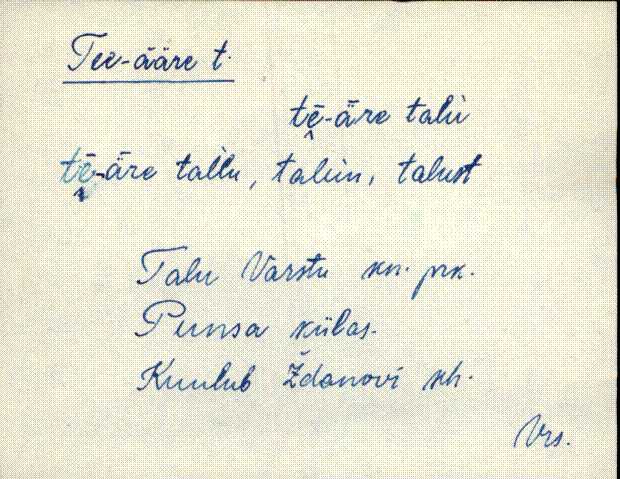 Tee-ääre t.
tē̬-äre talu
tē̬-äre tallu, talun, talust
Talu Varstu kn. prk.
Punsa külas.
Kuulub Ždanovi kh.
Vrs.